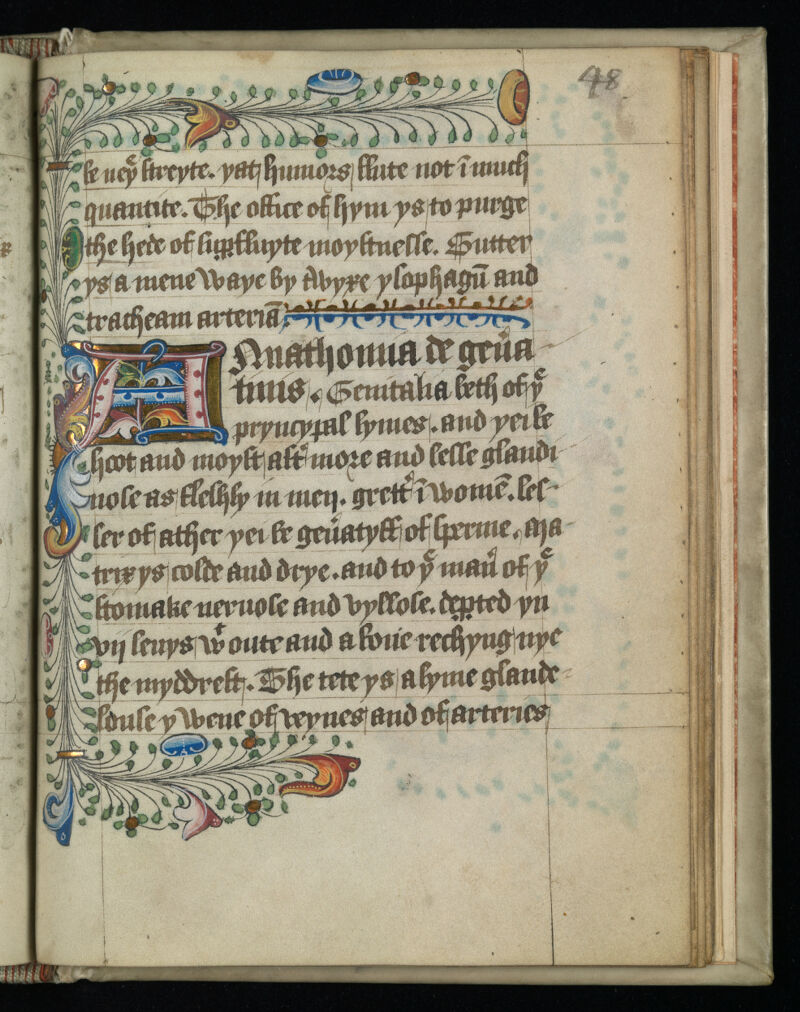 48
be neỹ streyte. yat humors flute not ī much
quantite. The office of hym ys to purge
the hede of suꝑfluyte moystnesse. Gutter
ys a mene waye by twyxe ysophagū and
tracheam arteriā.
Anathomia de gen̄a
tiuis. Genitalia beth of yͤ
pryncypal lymes. and yei be
hoot and moyst aft᷑ more and lesse glandi
nose as fleshly in men. grett᷑ ī womē. les
ser of ather yei be gen̄atyff of sperme. Ma
trix ys colde and drye. and to yͤ man̄ of yͤ
stomake neruose and vyllose. deꝑted yn
vij senys wͭ oute and a boue rechyng nye
the myddrest. The tete ys a lyme glande
louse y wene of veynes and of arteries